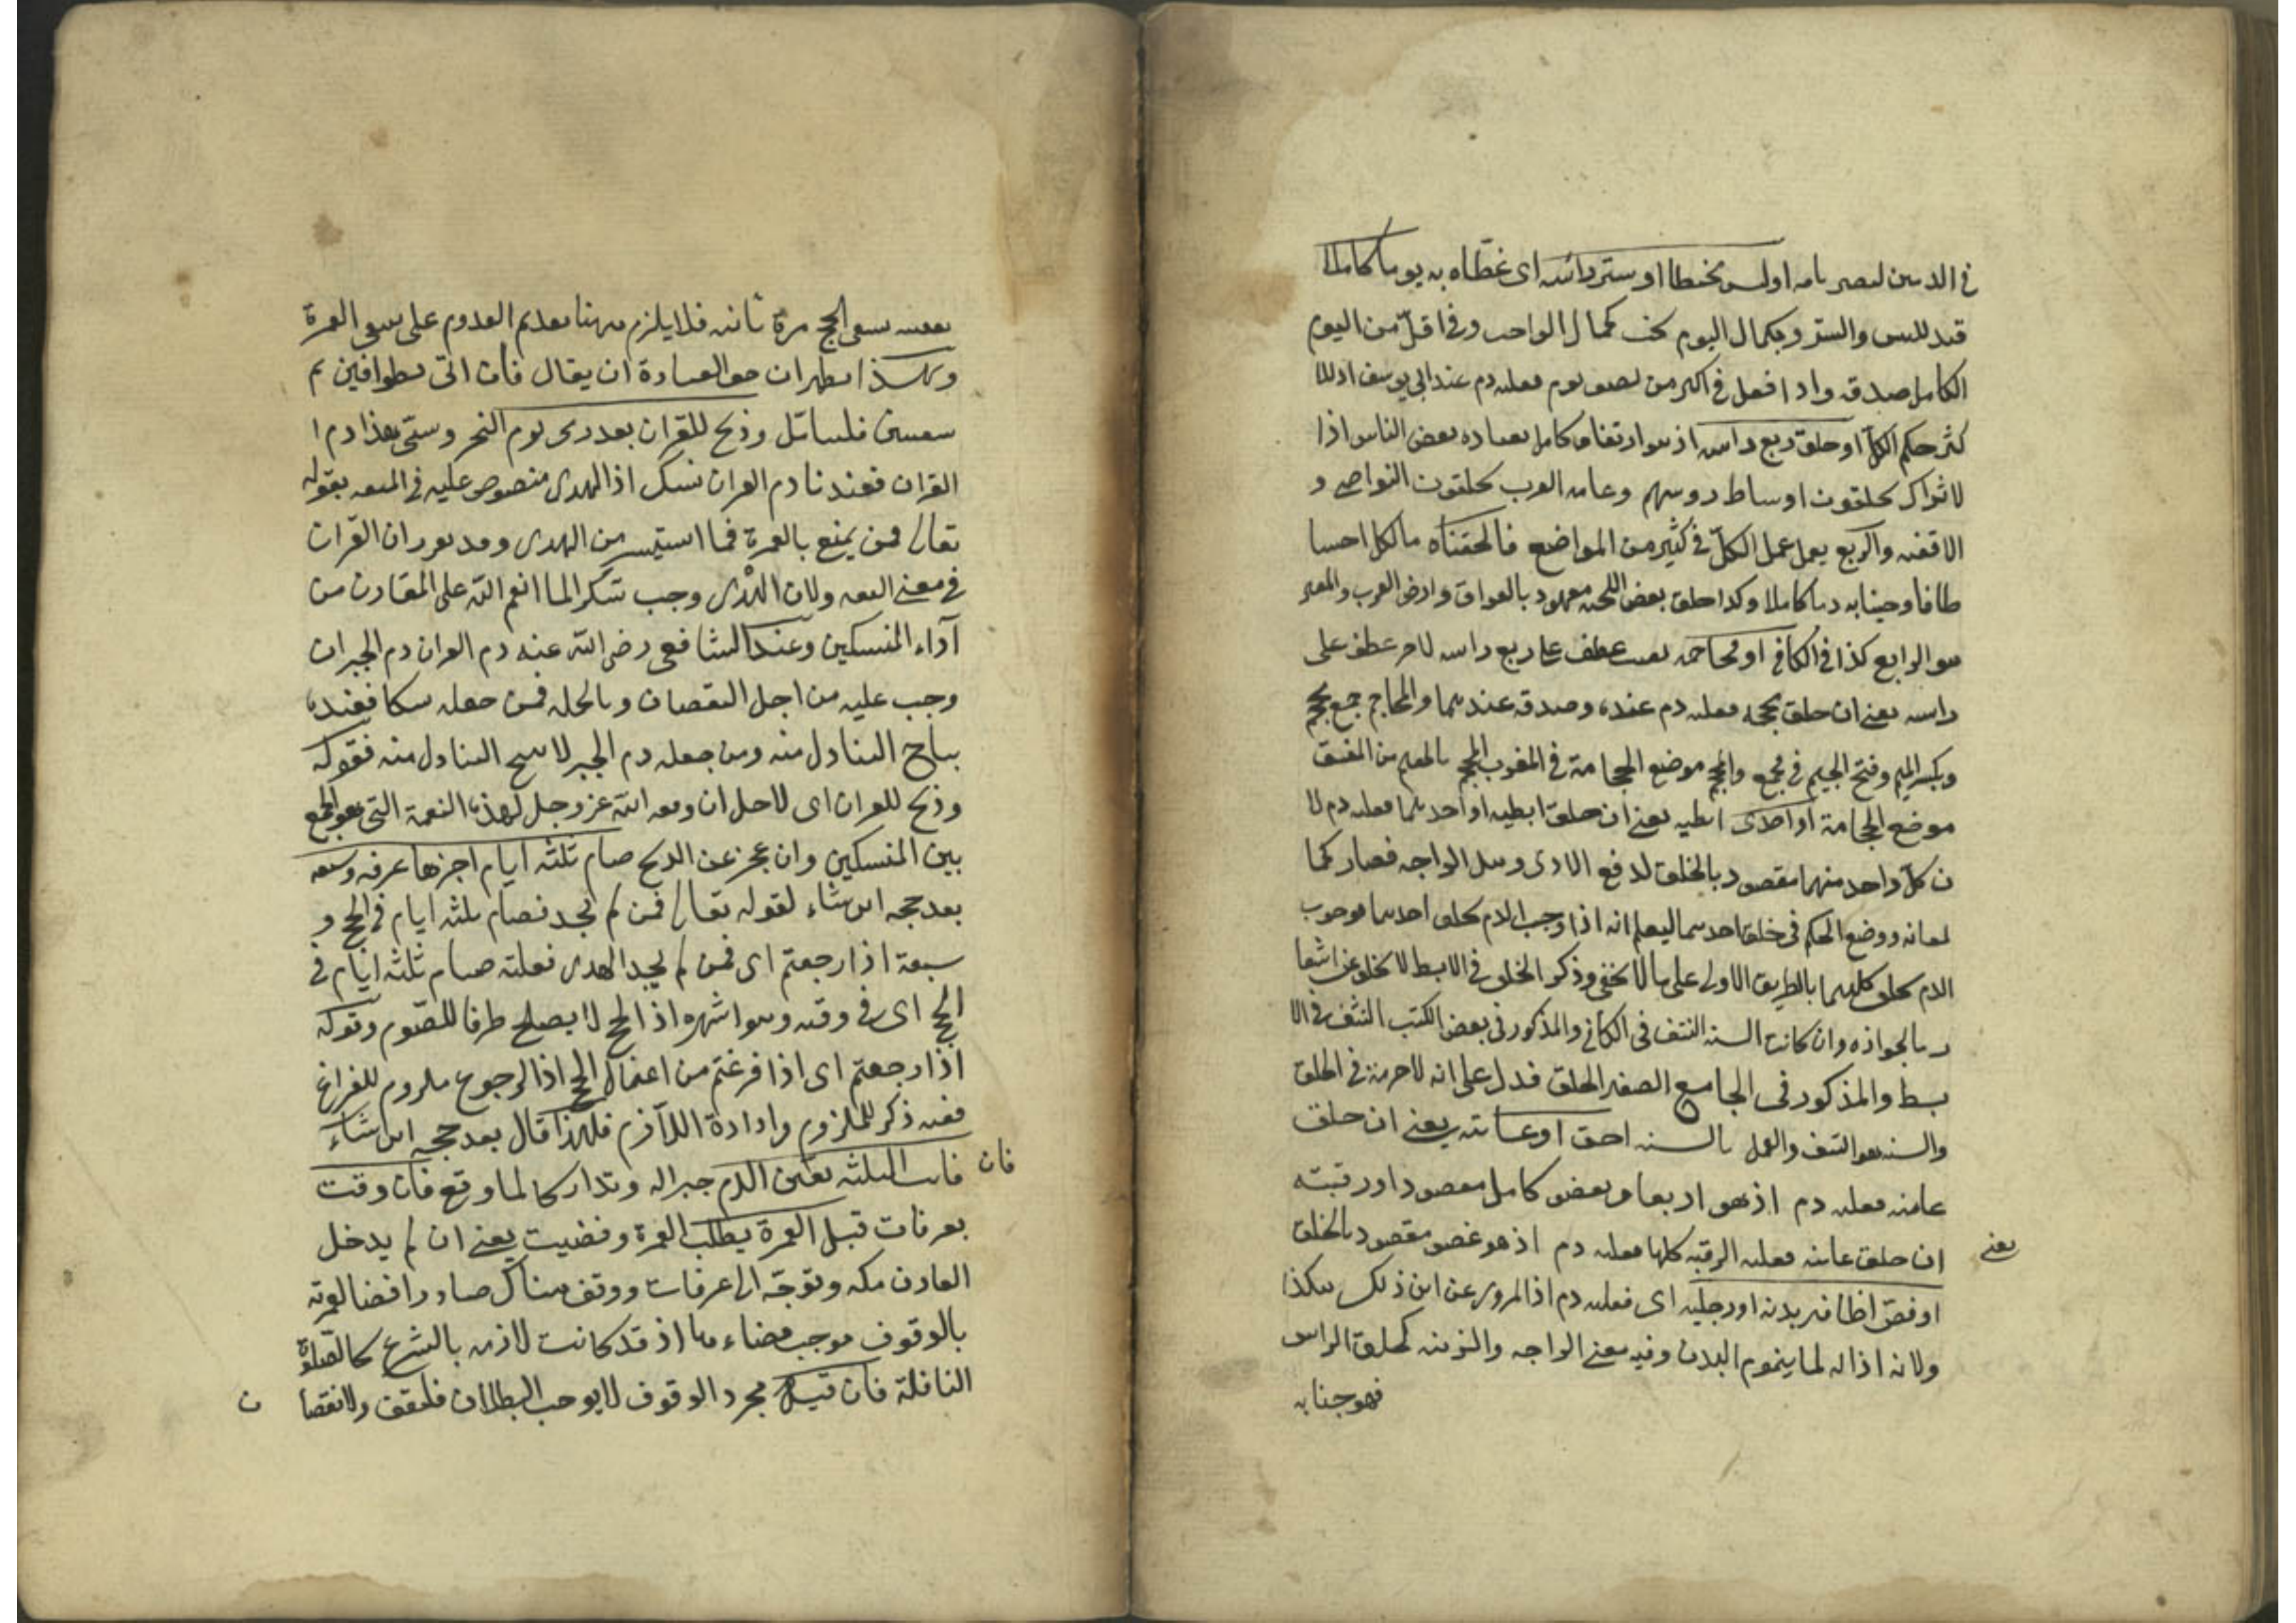 في الد هن لىصىر ىامه او لبس مخيطا او ستر رأسه اى غطّاه به يوما كاملا
قيد للبس والستر وبكمال اليوم يجب كمال الواجب وفى اقلّ من اليوم
الكامل صدقه واذا فعل فى اكثر من نصف يوم فعليه دم عند ابى يوسف اذ للا
كثر حكم الكلّ او حلق ربع راسه اذ هو ارتفاق كامل بعاده بعض الناس اذا
لاتراك يحلقون اوساط روسهم وعامه العرب يحلقون النواصى و
الاقفيه والربع يعمل عمل الكلّ فى كثير من المواضع فالحقناه بالكل احتيا
طا فاوجبنا به دما كاملا وكذا حلق بعض اللحيه معهود بالعراق وارض العرب والمعتبر
هو الرابع كذا فى الكافى او محاجمه نصب عطف على ربع راسه لا جر عطف على
راسه يعنى ان حلق محجمه فعليه دم عنده وصدقه عندهما والمحاجم جمع محجم
وبكسر الميم وفتح الجيم فى مجمع والمحجم موضع الحجامة فى المغرب المحجم بالفتح من العنق
موضع الحجامة او احدى ابطيه يعنى ان حلق ابطيه او احدهما فعليه دم لا
ن كلّ واحد منهما مقصود بالحلق لدفع الاذى ونيل الراحه فصار كما
لعانه ووضع الحكم فى حلق احدهما ليعلم انه اذا وجب الدم بحلق احدهما فوجوب
الدم بحلق كليهما بالطريق الاولى على ما لا يخفى وذكر الحلق فى الابط لا يخلو عن اشعا
ر بالجواز وان كانت السنه النتف فى الكافى والمذكور فى بعض الكتب النتف فى الا
بط والمذكور فى الجامع الصغير الحلق فدل على انه لا حرمة فى الحلق
والسنه هو النتف والعمل بالسنه احق او عانته يعنى ان حلق
عانته فعليه دم اذ هو ارتفاق بعضو كامل مقصود او رقبته
يعنى
ان حلق عانته فعليه الرقبه كلها فعليه دم اذ هو عضو مقصود بالحلق
او قصّ اظافير يديه او رجليه اى فعليه دم اذ المروى عن ابن ذلك هكذا
ولانه اذاله لما ينمو من البدن وفيه معنى الراحه والزينه كحلق الراس
فهو جنايه
سعى الحج مرة ثانيه فلا يلزم ههنا تقديم القدوم على سعى العمرة
وبهذا يظهر ان حق العبادة ان يقال فان اتى بطوافين ثم
سعيين فليتأمل وذبح للقران بعد رمى يوم النحر وسمّى هذا دم ا
القران فعندنا دم القران نسك اذ الهدى منصوص عليه فى المتعه بقوله
تعالى فمن يمتع بالعمرة فما استيسر من الهدى وقد تقرر ان القران
فى معنى المتعه ولان الهدى وجب شكرا لما انعم الله على القارن من
آداء المنسكين وعند الشافعى رضى الله عنه دم القران دم الجبران
وجب عليه من اجل النقصان وبالجمله فمن جعله نسكا فعنده
يباح التناول منه ومن جعله دم الجبر لا يبيح التناول منه فقوله
وذبح للقران اى لاجل ان وفقه الله عز وجل لهذه النعمة التى هو الجمع
بين المنسكين وان عجز عن الذبح صام ثلثه ايام اخرها عرفه وسبعه
بعد حجه اين شاء لقوله تعالى فمن لم يجد فصام ثلثه ايام فى الحج و
سبعة اذا رجعتم اى فمن لم يجد الهدى فعليه صيام ثلثه ايام فى
الحج اى فى وقته وهو اشهره اذ الحج لا يصلح ظرفا للصوم وقوله
اذا رجعتم اى اذا فرغتم من اعمال الحج اذ الرجوع ملزوم للفراغ
ففيه ذكر للملزوم وارادة اللآزم فلهذا قال بعد حجه اين شاء
فان
فاتت الثلثه تعين الدم جبرا له وتداركا لما وقع فان وقت
بعرفات قبل العمرة يطلب العمرة وقضيت يعنى ان لم يدخل
القارن مكه وتوجّه الى عرفات ووقف هناك صار رافضا لعمرته
بالوقوف فوجب قضاءها اذ قد كانت لازمه بالشرع كالصلوة
النافلة فان قيل مجرد الوقوف لا يوجب البطلان فليقف ولا نقصا
ن